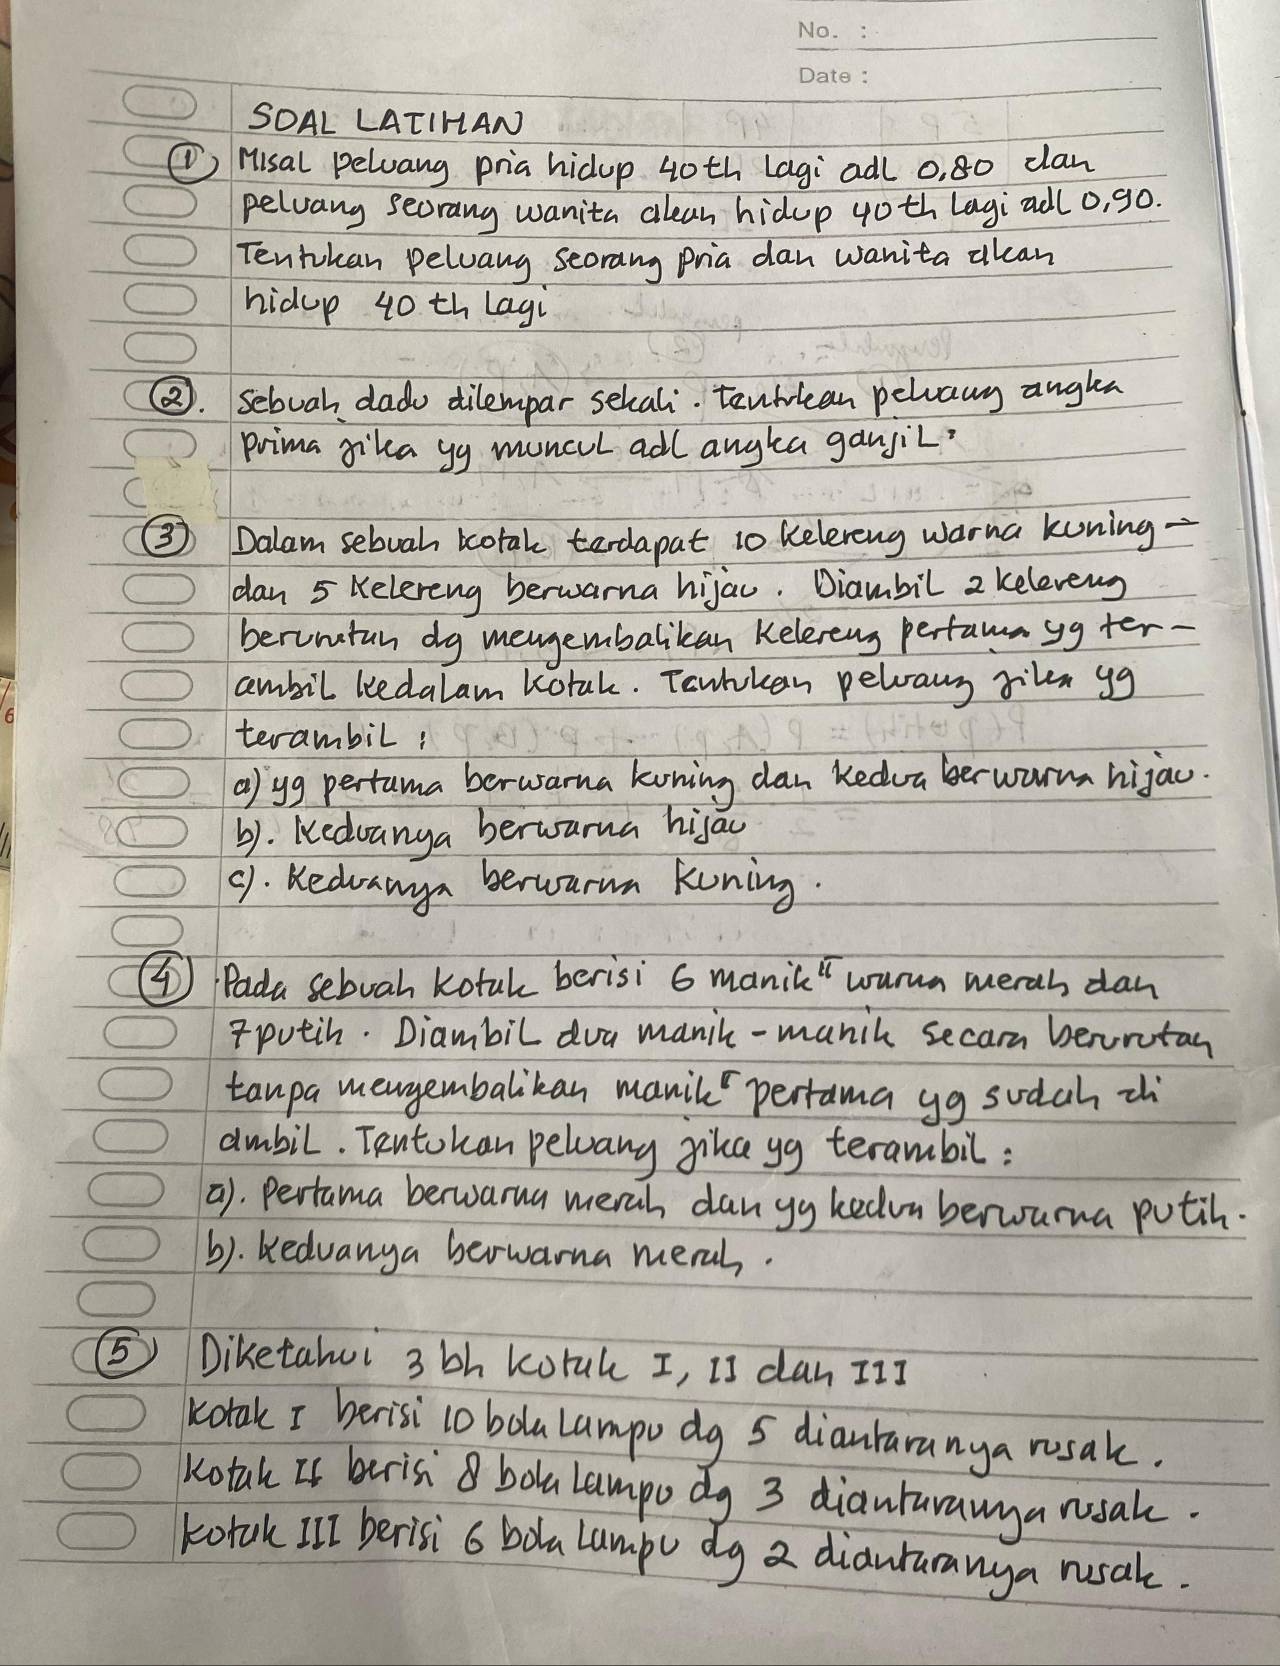 No. :
Date :
SOAL LATIHAN
① Misal peluang pria hidup 40th Lagi adl 0,80 dan
peluang seorang wanita akan hidup 40th Lagi adl 0,90.
Tentukan peluang seorang pria dan wanita akan
hidup 40 th Lagi
②. Sebuah dadu dilempar sekali. Tentukan peluang angka
prima jika yg muncul adl angka ganjil?
③ Dalam sebuah kotak terdapat 10 Kelereng warna kuning -
dan 5 Kelereng berwarna hijau. Diambil 2 kelereng
berurutan dg mengembalikan Kelereng pertama yg ter-
ambil kedalam kotak. Tentukan peluang jika yg
terambil :
a) yg pertama berwarna kuning dan kedua berwarna hijau.
b). Keduanya berwarna hijau
c). Keduanya berwarna kuning.
④ Pada sebuah kotak berisi 6 manik" warna merah dan
7 putih. Diambil dua manik-manik secara berurutan
tanpa mengembalikan manik" pertama yg sudah di
ambil. Tentukan peluang jika yg terambil :
a). Pertama berwarna merah dan yg kedua berwarna putih.
b). Keduanya berwarna merah.
⑤ Diketahui 3 bh kotak I, II dan III
Kotak I berisi 10 bola lampu dg 5 diantaranya rusak.
Kotak II berisi 8 bola lampu dg 3 diantaranya rusak.
Kotak III berisi 6 bola lampu dg 2 diantaranya rusak.